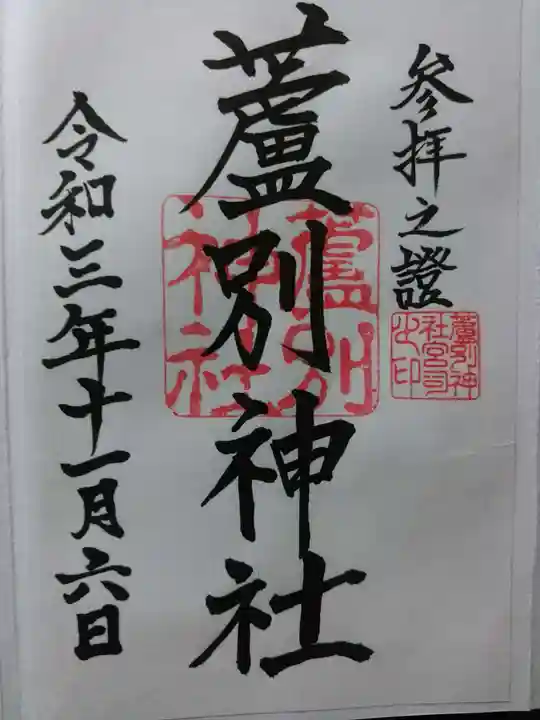 參拝之證
蘆別神
社宮司
之印
蘆別神社
蘆別
神社
令和三年十一月六日